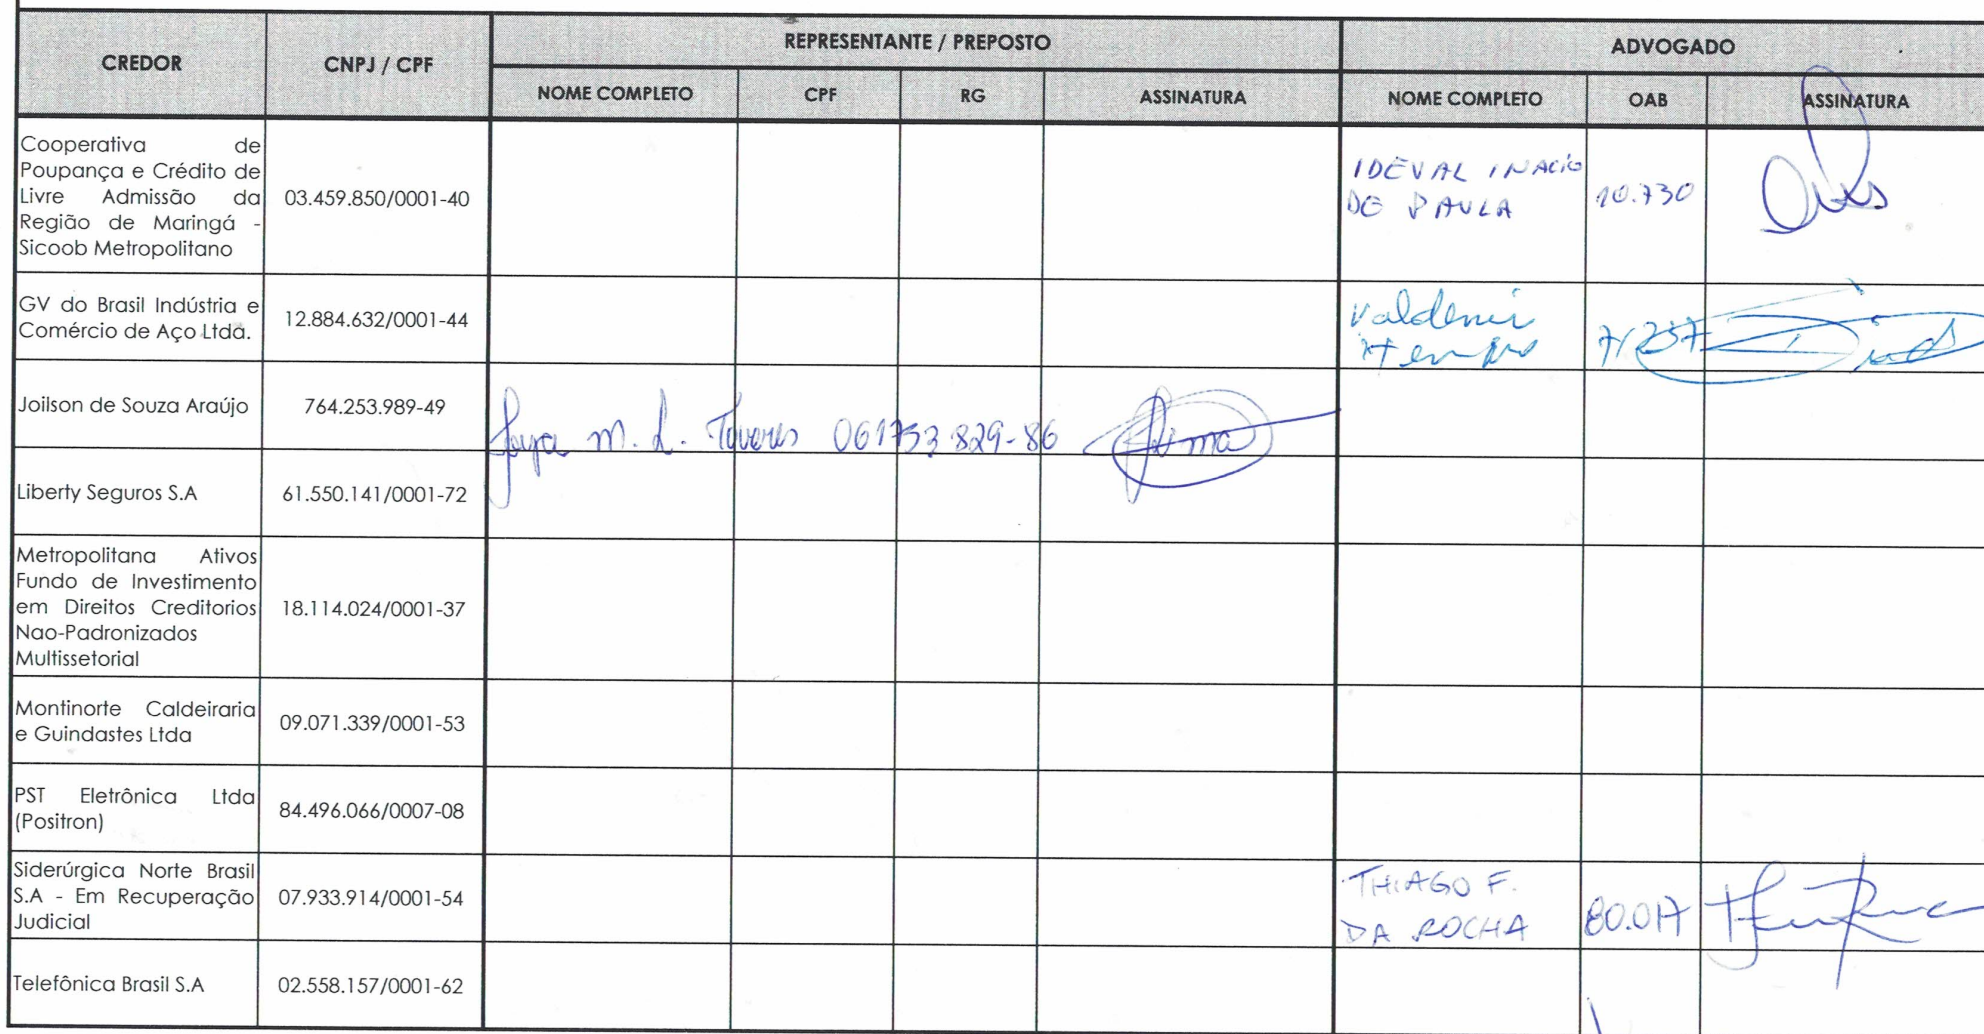 CREDOR
CNPJ / CPF
REPRESENTANTE / PREPOSTO
ADVOGADO
NOME COMPLETO
CPF
RG
ASSINATURA
NOME COMPLETO
OAB
ASSINATURA
Cooperativa de
Poupança e Crédito de
Livre Admissão da
Região de Maringá -
Sicoob Metropolitano
03.459.850/0001-40
IDEVAL INACIO
DE PAULA
10.730
GV do Brasil Indústria e
Comércio de Aço Ltda.
12.884.632/0001-44
Valdemir
71237
Joilson de Souza Araújo
764.253.989-49
M. L. Tavares 061753829-86
Liberty Seguros S.A
61.550.141/0001-72
Metropolitana Ativos
Fundo de Investimento
em Direitos Creditorios
Nao-Padronizados
Multissetorial
18.114.024/0001-37
Montinorte Caldeiraria
e Guindastes Ltda
09.071.339/0001-53
PST Eletrônica Ltda
(Positron)
84.496.066/0007-08
Siderúrgica Norte Brasil
S.A - Em Recuperação
Judicial
07.933.914/0001-54
THIAGO F.
DA ROCHA
80.017
Telefônica Brasil S.A
02.558.157/0001-62